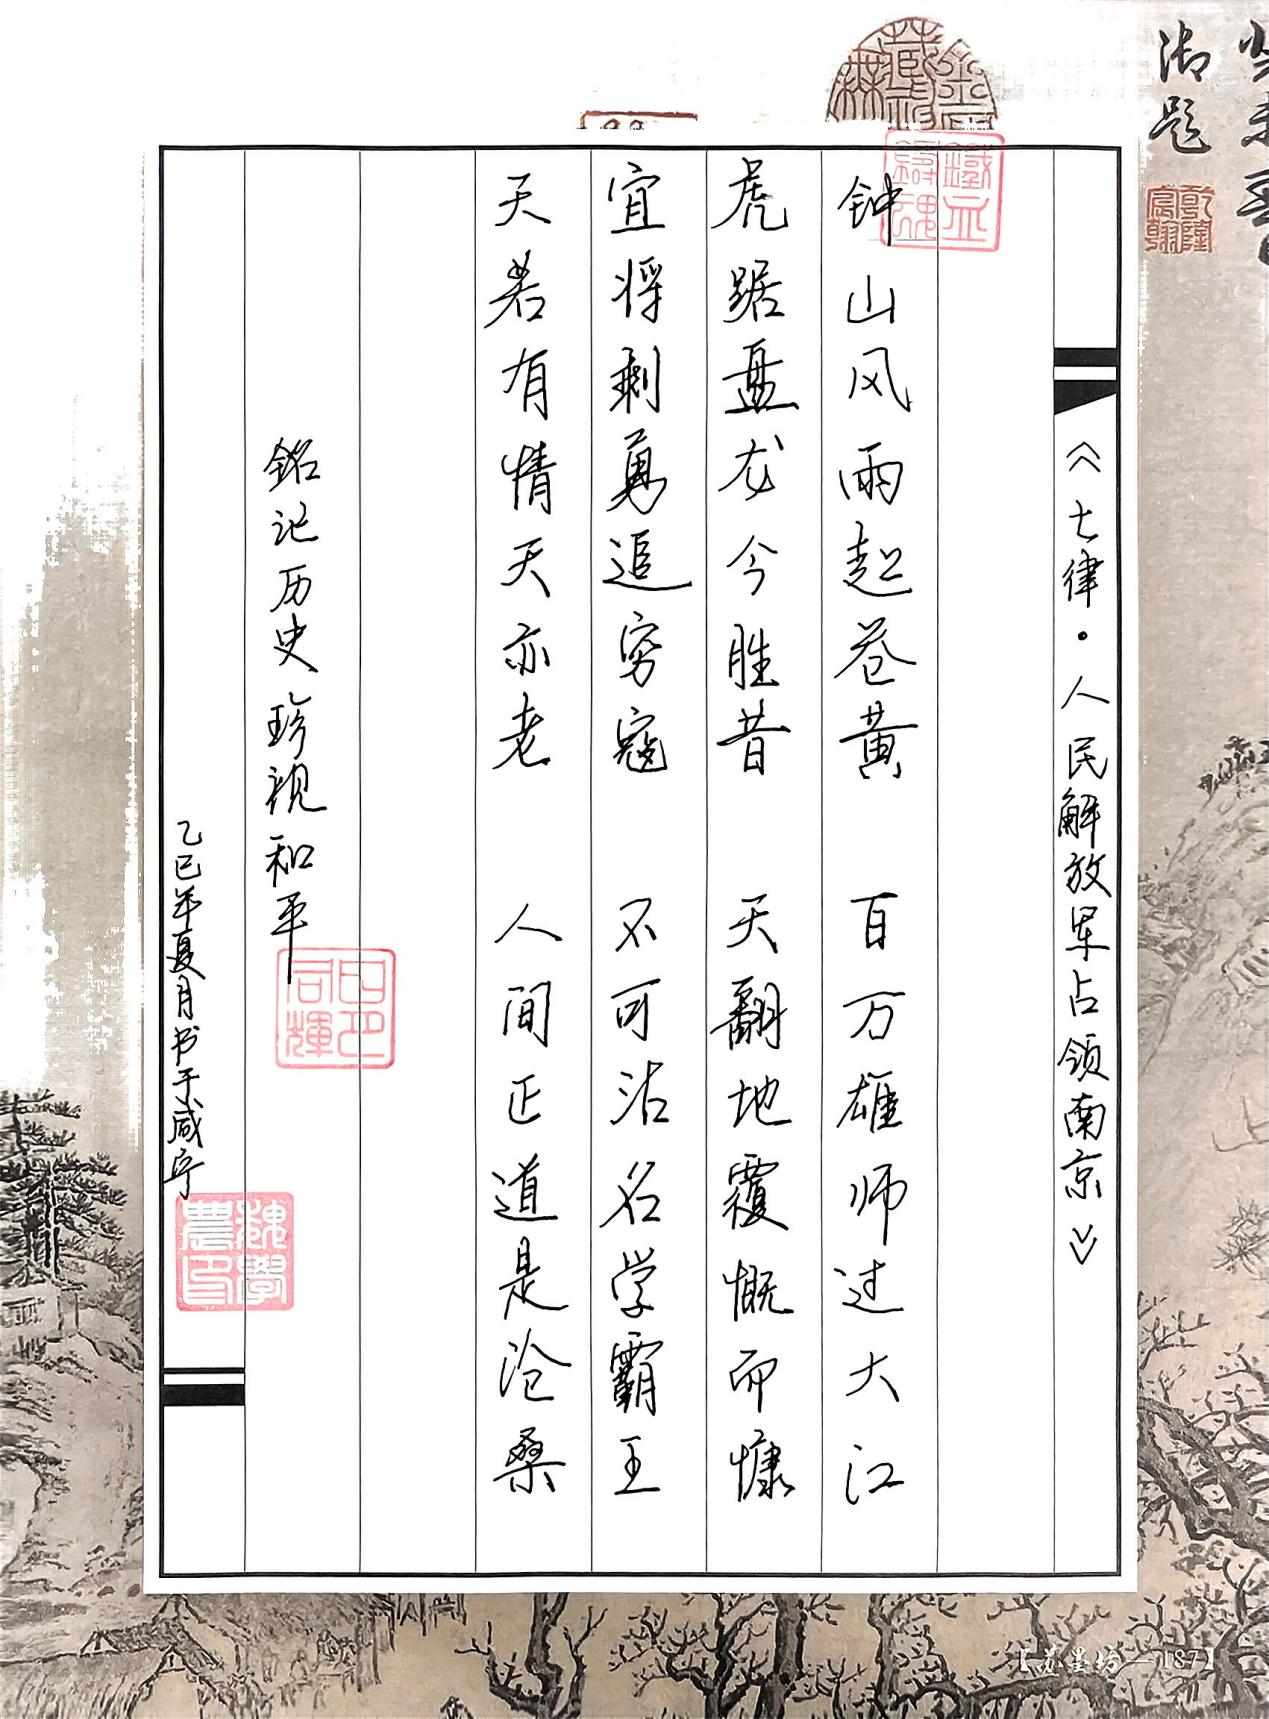 御题
乾隆宸翰
鐵血鑄魂
《七律·人民解放军占领南京》
钟山风雨起苍黄 百万雄师过大江
虎踞盘龙今胜昔 天翻地覆慨而慷
宜将剩勇追穷寇 不可沽名学霸王
天若有情天亦老 人间正道是沧桑
銘记历史珍视和平
日月同輝
乙巳年夏月书于咸宁
魏學農印
【苏墨坊—187】